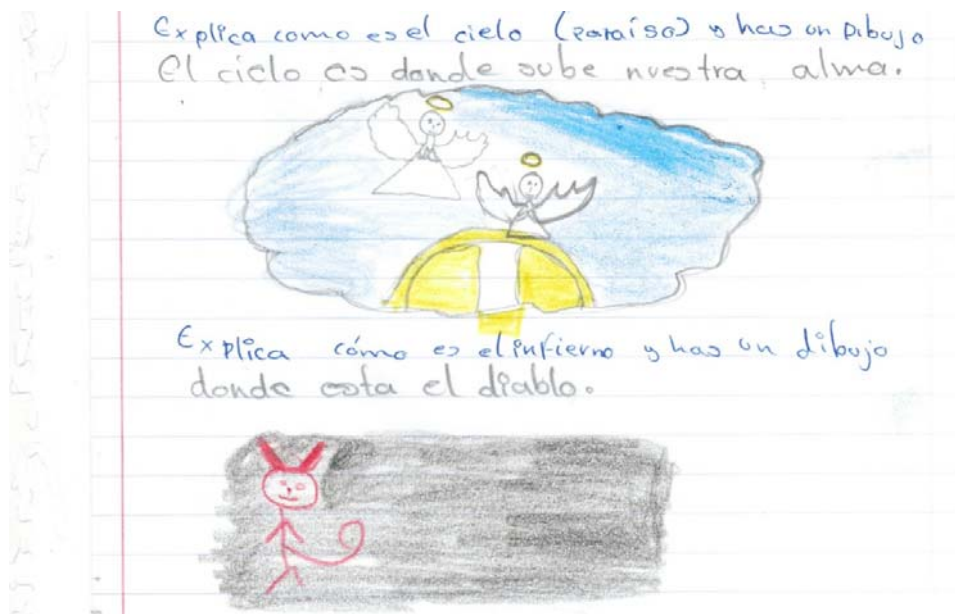 Explica como es el cielo (paraíso) y has un Dibujo
El cielo es donde sube nuestra alma.
Explica cómo es el infierno y has un dibujo
donde esta el diablo.